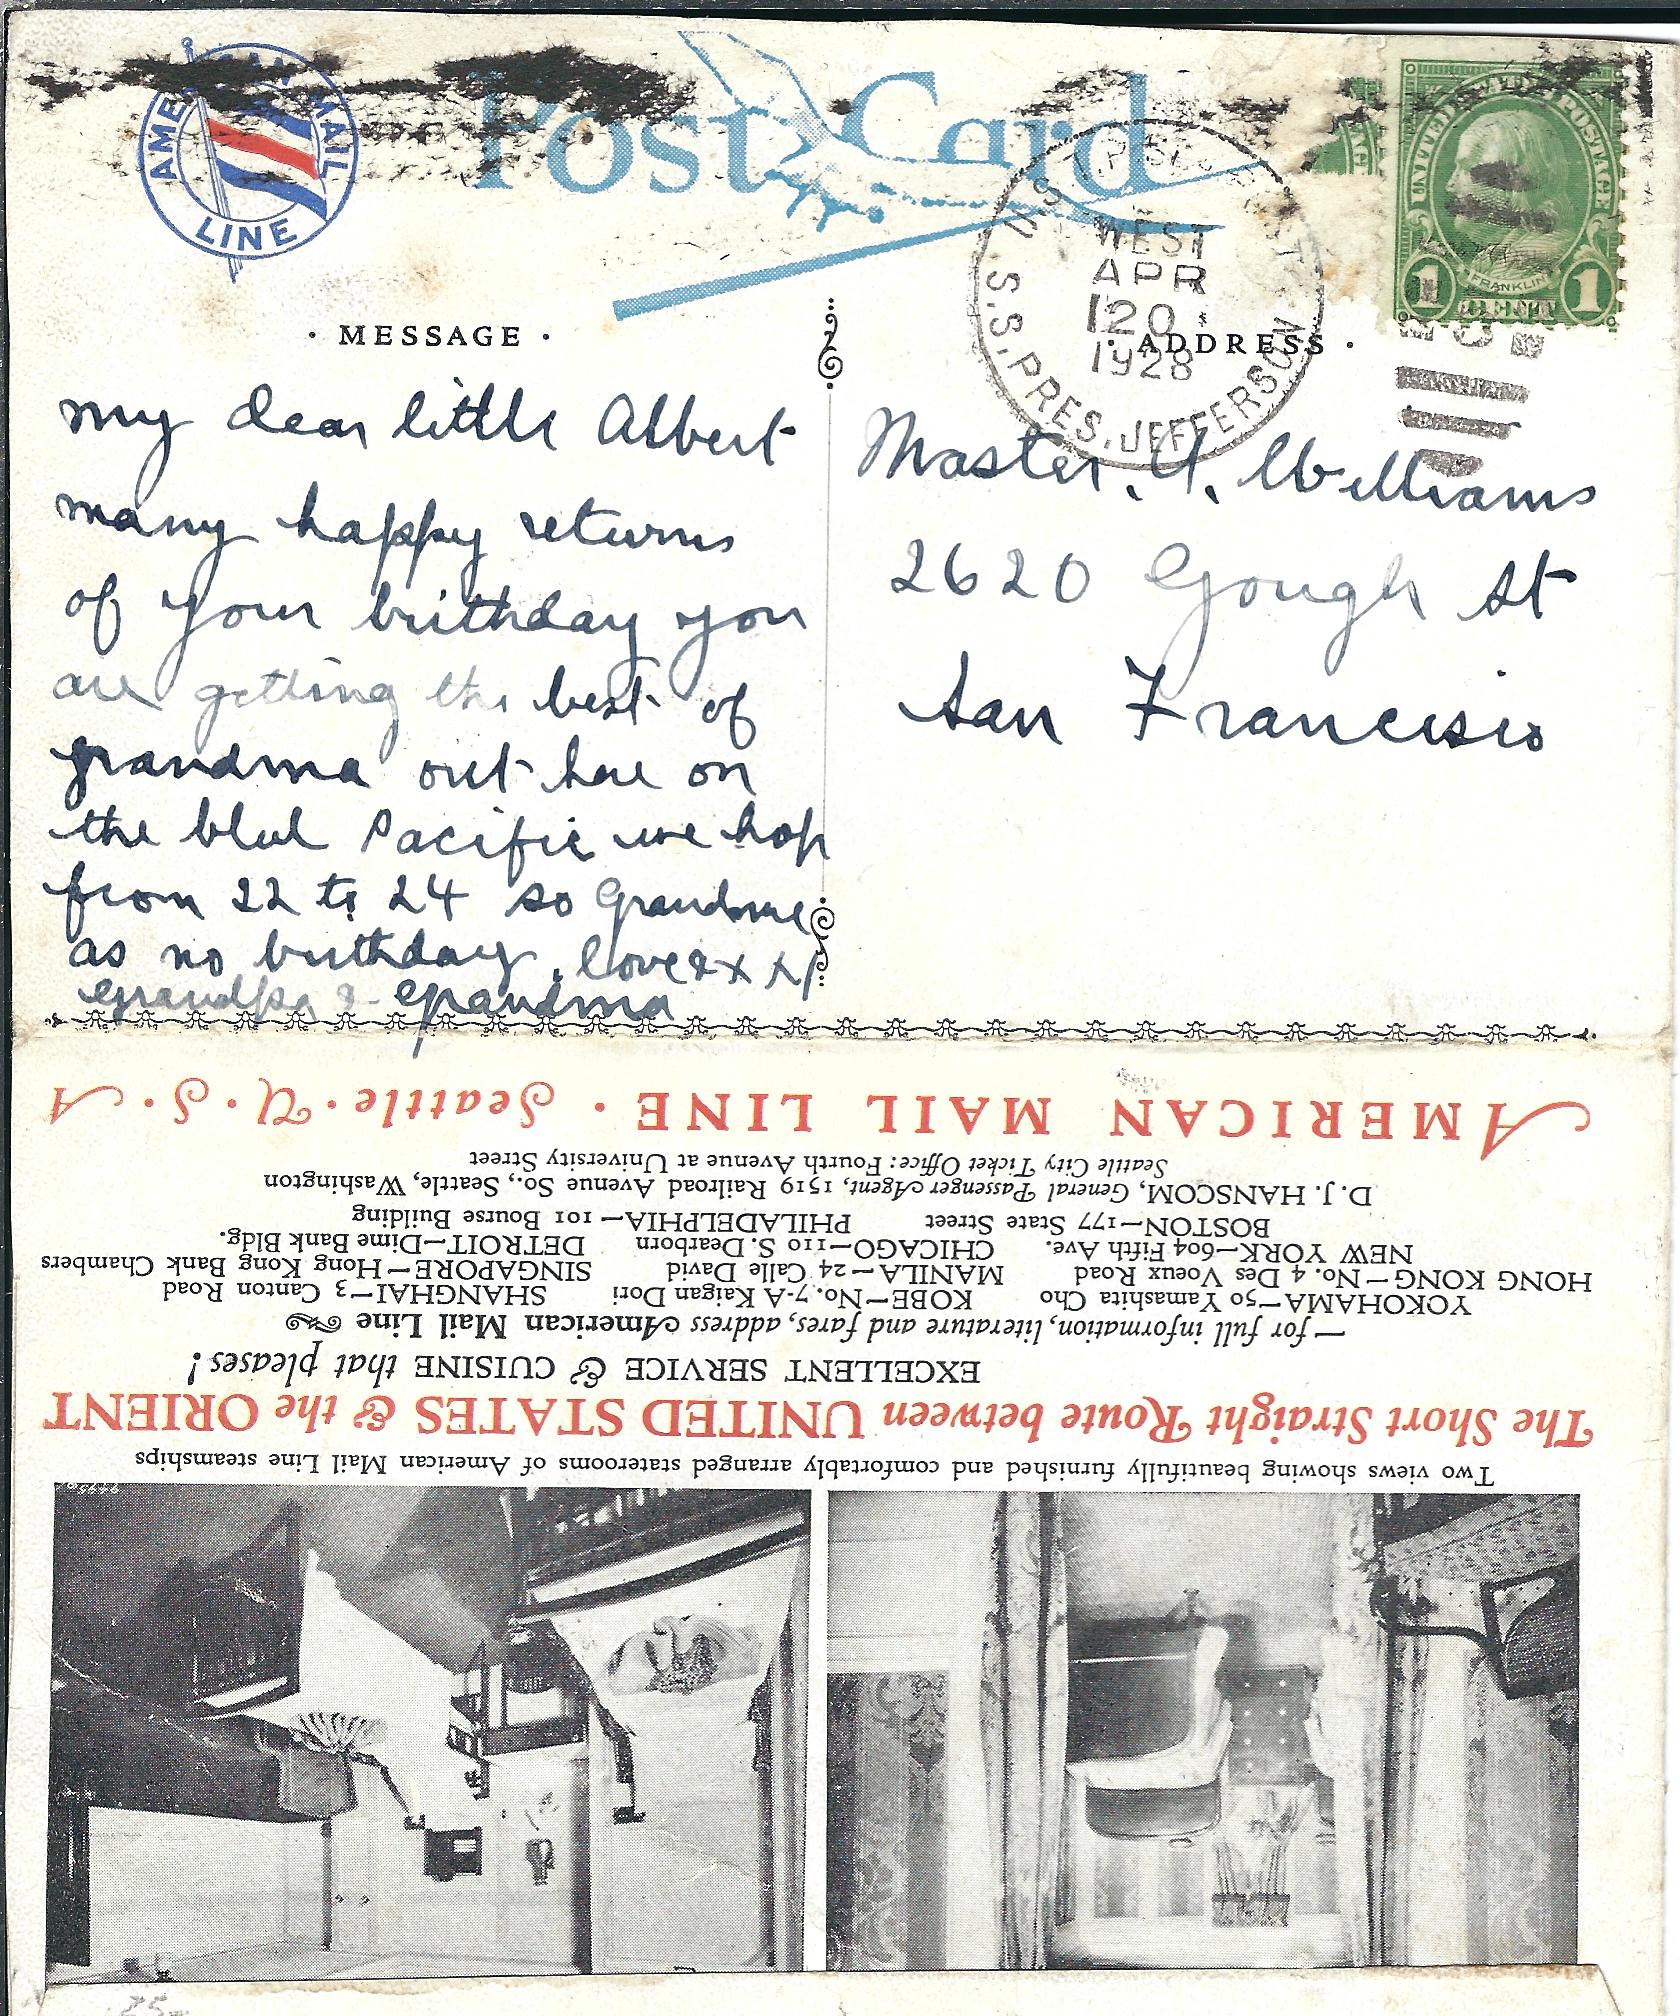 AMERICAN MAIL LINE
Post Card
U.S. S.S. PRES. JEFFERSON
WEST
APR
20
1928
UNITED STATES POSTAGE
FRANKLIN
1 CENT 1
· MESSAGE ·
· ADDRESS ·
my dear little Albert
many happy returns
of your birthday you
are getting the best of
grandma out here on
the blue Pacific we hop
from 22 to 24 so Grandma
as no birthday. love
grandpa & grandma
Master. A. Williams
2620 Gough St
San Francisco
AMERICAN MAIL LINE · Seattle · U · S · A
Seattle City Ticket Office: Fourth Avenue at University Street
D. J. HANSCOM, General Passenger Agent, 1519 Railroad Avenue So., Seattle, Washington
BOSTON—177 State Street PHILADELPHIA—101 Bourse Building
NEW YORK—604 Fifth Ave. CHICAGO—110 S. Dearborn DETROIT—Dime Bank Bldg.
HONG KONG—No. 4 Des Voeux Road MANILA—24 Calle David SINGAPORE—Hong Kong Bank Chambers
YOKOHAMA—50 Yamashita Cho KOBE—No. 7-A Kaigan Dori SHANGHAI—3 Canton Road
—for full information, literature and fares, address American Mail Line
EXCELLENT SERVICE & CUISINE that pleases!
The Short Straight Route between UNITED STATES & the ORIENT
Two views showing beautifully furnished and comfortably arranged staterooms of American Mail Line steamships